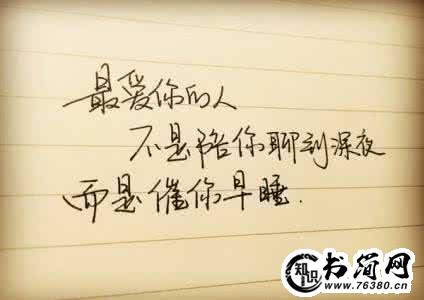 最爱你的人
不是陪你聊到深夜
而是催你早睡.
知识 书简网
www.76380.cn